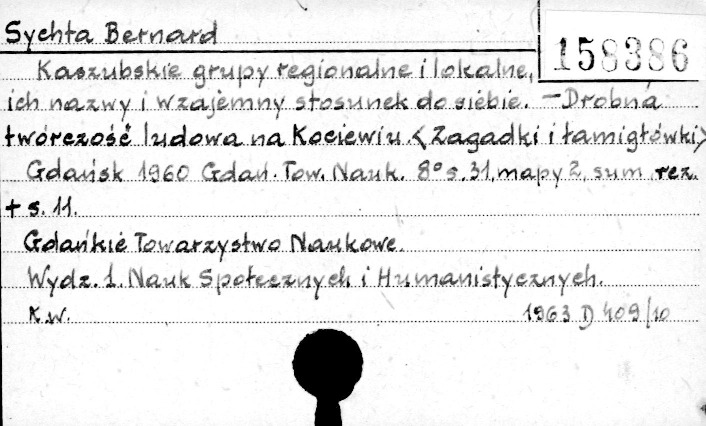 Sychta Bernard
158386
Kaszubskie grupy regionalne i lokalne,
ich nazwy i wzajemny stosunek do siebie. — Drobna
twórczość ludowa na Kociewiu. <Zagadki i łamigłówki>
Gdańsk 1960 Gdań. Tow. Nauk. 8° s. 31, mapy 2, sum rez.
+ s. 11.
Gdańkie Towarzystwo Naukowe.
Wydz. 1. Nauk Społecznych i Humanistycznych.
K.W. 1963 D 409/10